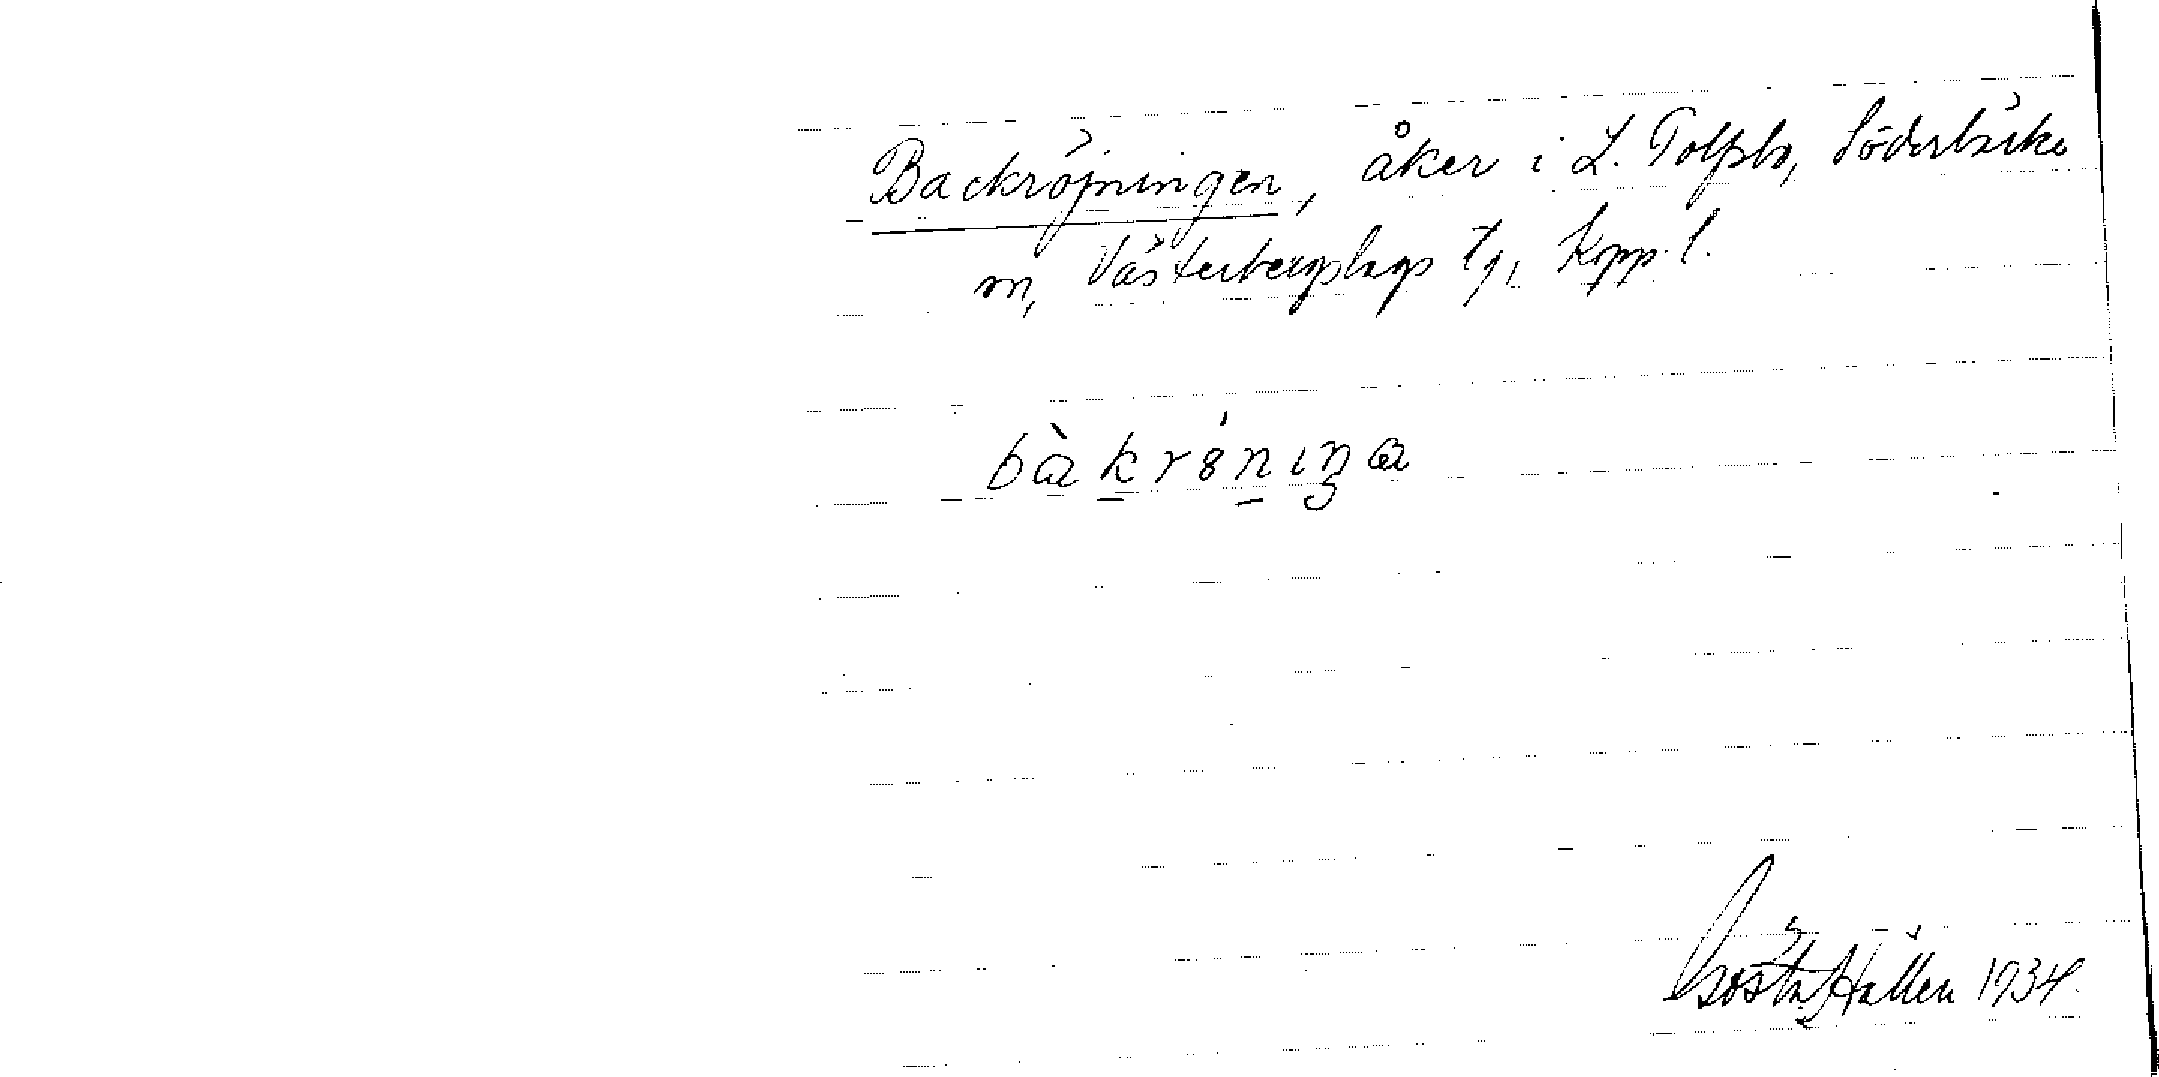 Backröjningen, åker i L. Tolfsbo, Söderbärke
sn, Västerbergslags tg, Kopp. l.
bàkrö́ninga
Gösta Hallén 1934.